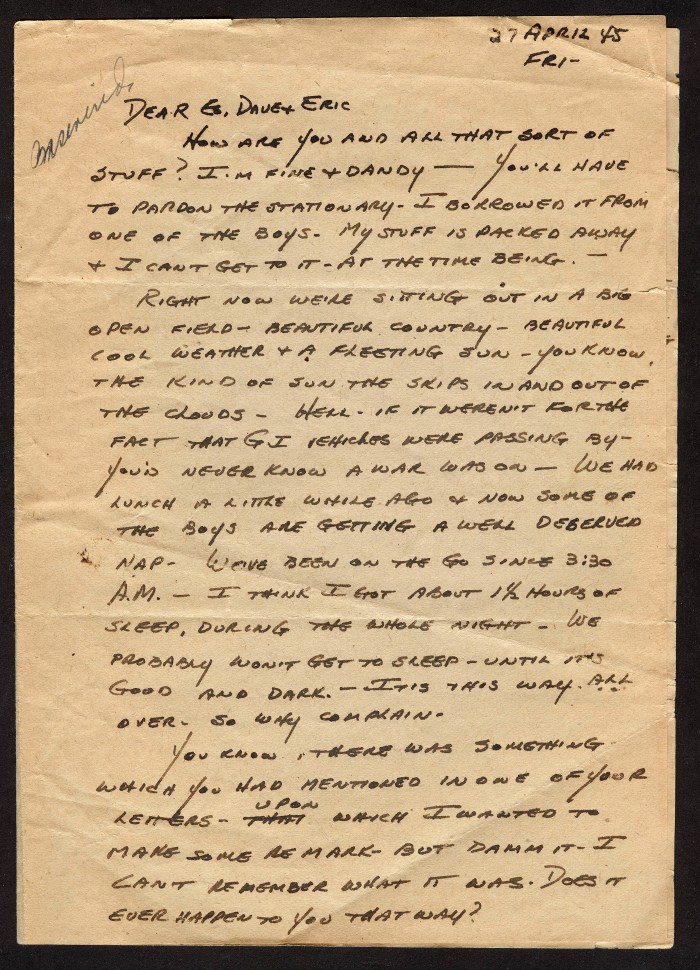 27 APRIL 45
FRI-
DEAR ES, DAVE & ERIC
HOW ARE YOU AND ALL THAT SORT OF
STUFF? I'M FINE & DANDY — YOU'LL HAVE
TO PARDON THE STATIONARY- I BORROWED IT FROM
ONE OF THE BOYS- MY STUFF IS PACKED AWAY
& I CANT GET TO IT - AT THE TIME BEING. —
RIGHT NOW WE'RE SITTING OUT IN A BIG
OPEN FIELD - BEAUTIFUL COUNTRY - BEAUTIFUL
COOL WEATHER & A FLEETING SUN - YOU KNOW,
THE KIND OF SUN THE SKIPS IN AND OUT OF
THE CLOUDS - WELL - IF IT WEREN'T FOR THE
FACT THAT GI VEHICLES WERE PASSING BY-
YOU'D NEVER KNOW A WAR WAS ON — WE HAD
LUNCH A LITTLE WHILE AGO & NOW SOME OF
THE BOYS ARE GETTING A WELL DESERVED
NAP- WE'VE BEEN ON THE GO SINCE 3:30
A.M. — I THINK I GOT ABOUT 1½ HOURS OF
SLEEP, DURING THE WHOLE NIGHT - WE
PROBABLY WON'T GET TO SLEEP - UNTIL IT'S
GOOD AND DARK. — IT IS THIS WAY ALL
OVER - SO WHY COMPLAIN-
YOU KNOW, THERE WAS SOMETHING
WHICH YOU HAD MENTIONED IN ONE OF YOUR
UPON
LETTERS - THAT WHICH I WANTED TO
MAKE SOME REMARK- BUT DAMM IT - I
CANT REMEMBER WHAT IT WAS. DOES IT
EVER HAPPEN TO YOU THAT WAY?